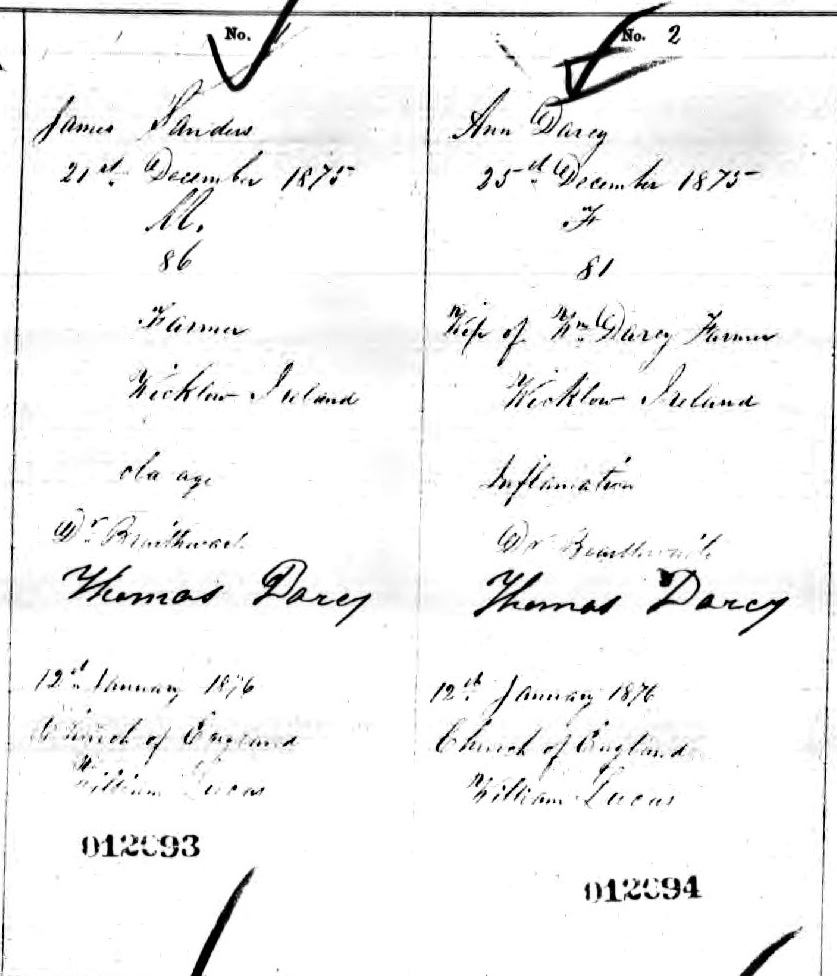 No. 1
James Sanders
21st December 1875
M.
86
Farmer
Wicklow Ireland
old age
Dr Braithwaite
Thomas Darcy
12th January 1876
Church of England
William Lucas
012693
No. 2
Ann Darcy
25th December 1875
F
81
Wife of Wm Darcy Farmer
Wicklow Ireland
Inflamation
Dr Braithwaite
Thomas Darcy
12th January 1876
Church of England
William Lucas
012694